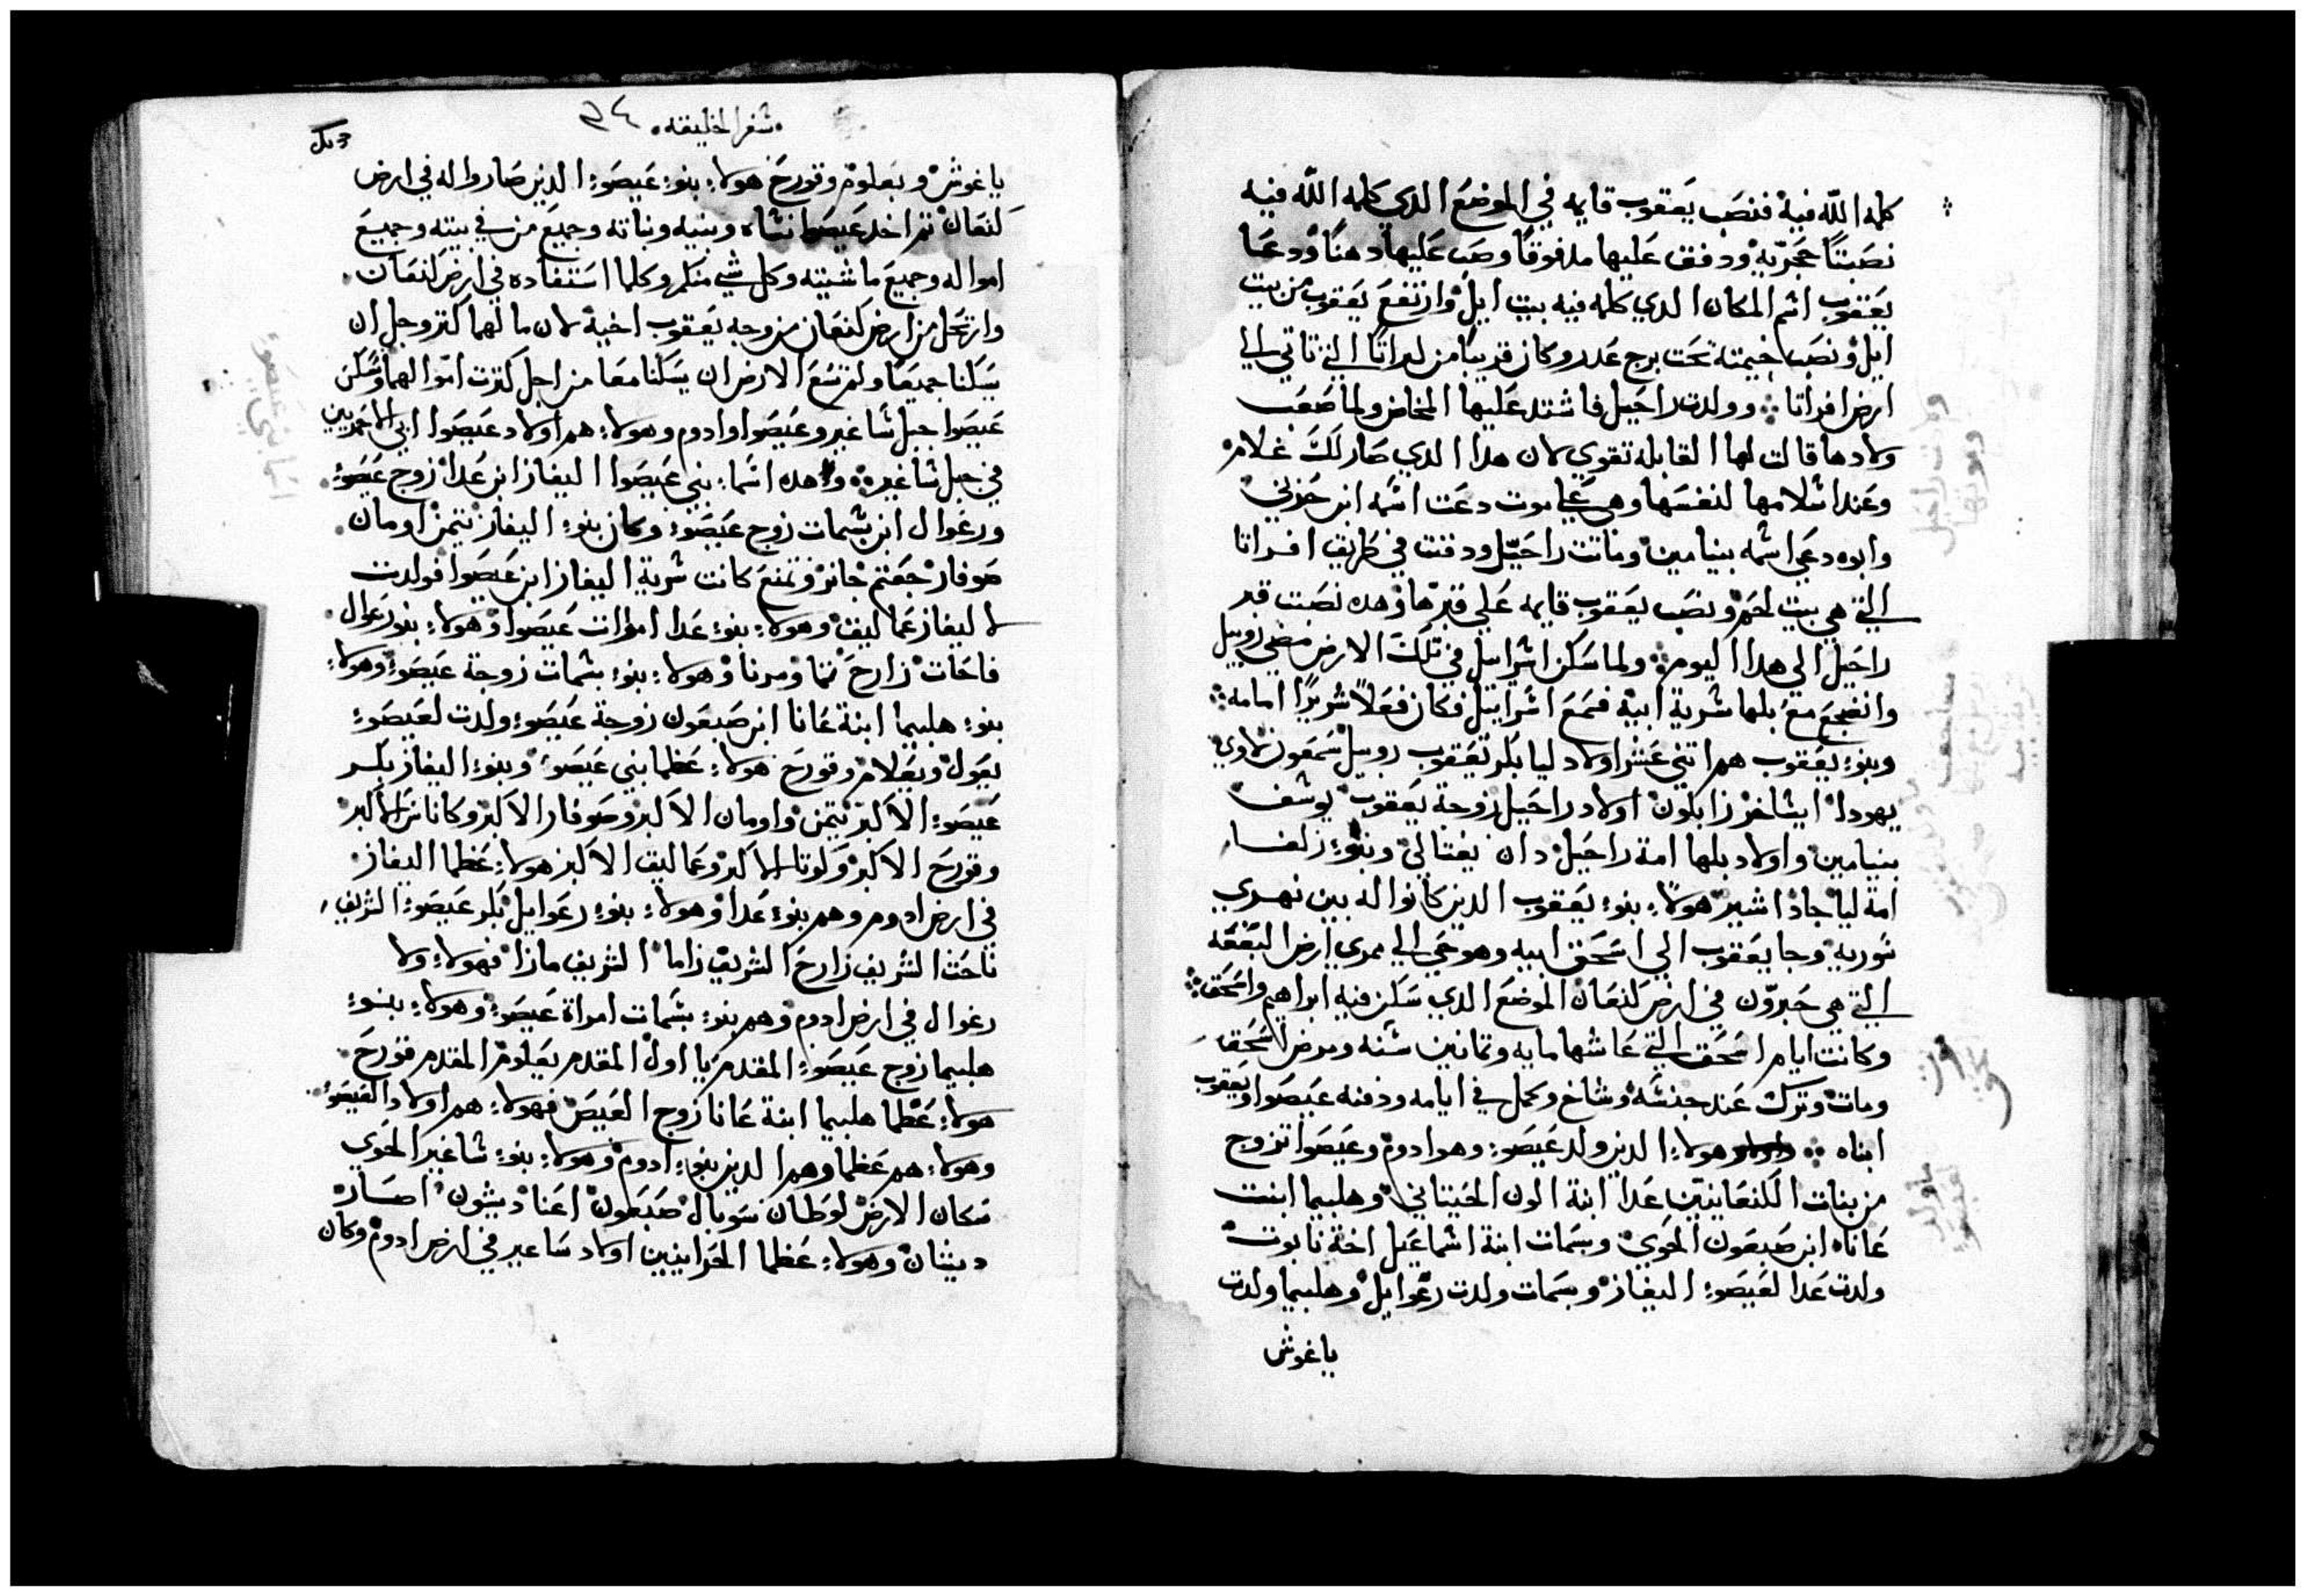 كلمه الله فيه فنصب يعقوب قايمه في الموضع الدي كلمه الله فيه
نصبتا حجريه ودفق عليها مدفوقا وصب عليها دهنا ودعا
يعقوب اسم المكان الدي كلمه فيه بيت ايل وارتفع يعقوب من بيت
ايل ونصب خيمته تحت برج عدر وكان قريبا من لدراتا التي تاتي الي
ارض افراتا وولدت راحيل فاشتد عليها المخاض ولما صعب
ولادها قالت لها القابله تقوي لان هدا الدي صار لك غلام
وعند اسلامها لنفسها وهي علي موت دعت اسمه ابن حزني
وابوه دعي اسمه بنيامين وماتت راحيل ودفنت في طريق افراتا
التي هي بيت لحم ونصب يعقوب قايمه علي قبرها وهده نصبت قبر
راحيل الي هدا اليوم ولما سكن اسراييل في تلك الارض مضي روبيل
وانضجع مع بلها سرية ابيه فسمع اسراييل فكان فعلا شريرا امامه
وبنو يعقوب هم اتني عشر اولاد ليا بكر يعقوب روبيل سمعون لاوي
يهودا ايشاخر زابلون اولاد راحيل زوجة يعقوب يوسف
بنيامين واولاد بلها امة راحيل دان نفتالي وبنو زلفا
امة ليا جاد اشير هولا بنو يعقوب الدين كانوا له بين نهري
سوريه وجا يعقوب الي اسحق ابيه وهو حي الي ممري ارض البقعه
التي هي حبرون في ارض كنعان الموضع الدي سكن فيه ابراهيم واسحق
وكانت ايام اسحق التي عاشها مايه وتمانين سنه ومرض اسحق
ومات وترك عند جنسه وشاخ وكمل في ايامه ودفنه عيصوا ويعقوب
ابناه هولا الدين ولد عيصو وهو ادوم وعيصوا تزوج
من بنات الكنعانيين عدا ابنة الون الحيتاني وهليما ابنت
عاناه ابن صبعون الحوي وبسمات ابنة اسماعيل اخة نابوت
ولدت عدا لعيصو اليفاز وبسمات ولدت رعوايل وهليما ولدت
ياغوش
سفر الخليقه ٣٤
ياغوش ويعلوم وقورح هولا بنو عيصو الدين صاروا له في ارض
كنعان تم اخد عيصوا نساه وبنيه وبناته وجميع من في بيته وجميع
امواله وجميع ماشيته وكل شي متلمر وكلما استفاده في ارض كنعان
وارتحل من ارض كنعان من وجه يعقوب اخيه لان مالهما كتر وجل ان
يسكنا جميعا ولم تسع الارض ان يسكنا معا من اجل كترت اموالهما وسكن
عيصوا جبل ساعير وعيصوا وادوم وهولا هم اولاد عيصوا ابي الاحمريين
في جبل ساعير وهده اسما بني عيصوا اليفاز ابن عدا زوج عيصو
ورعوال ابن بسمات زوج عيصو وكان بنو اليفاز تيمن اومان
صوفار جعتم خانز وتمنع كانت سرية اليفاز ابن عيصوا فولدت
لاليفاز عماليق وهولا بنو عدا امرات عيصوا وهولا بنو رعوال
ناحات زارح تما ومرنا وهولا بنو بسمات زوجة عيصو وهولا
بنو هليما ابنة عانا ابن صبعون زوجة عيصو ولدت لعيصو
يعول ويعلام وقورح هولا عظما بني عيصو وبنو اليفاز بكر
عيصو الاكبر تيمن واومان الاكبر وصوفار الاكبر وكاناس الاكبر
وقورح الاكبر وكوتا الاكبر وعماليق الاكبر هولا عظما اليفاز
في ارض ادوم وهم بنو عدا وهولا بنو رعوايل بكر عيصو الشريف
ناحت الشريف زارح الشريف زاما الشريف مازا فهولا ولا
رعوال في ارض ادوم وهم بنو بسمات امراة عيصو وهولا بنو
هليما زوج عيصو المقدم يا اول المقدم يعلوم المقدم قورح
هولا عظما هليما ابنة عانا زوج العيص فهولا هم اولاد العيصو
وهولا هم عظما وهم الدين بنو ادوم وهولا بنو ساعير الحوي
سكان الارض لوطان سوبال صبعون اعنا ديشون اصار
ديشان وهولا عظما الحرانيين اولاد ساعير في ارض ادوم وكان